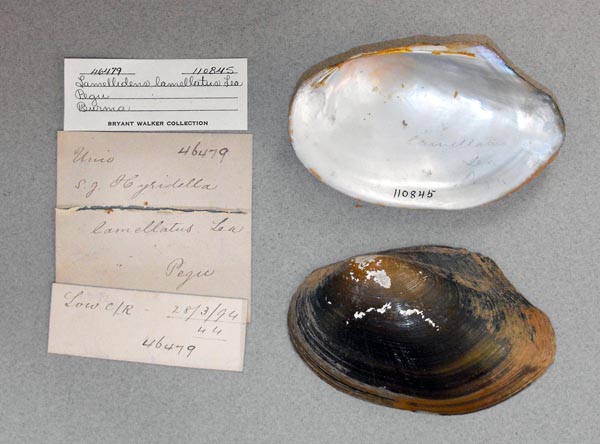 46479 110845
Lamellidens lamellatus Lea
Pegu
Burma
BRYANT WALKER COLLECTION
Unio 46479
s.g. Hyridella
lamellatus. Lea
Pegu
Low C/R - 28/3/94
44
46479
lamellatus
Lea
110845